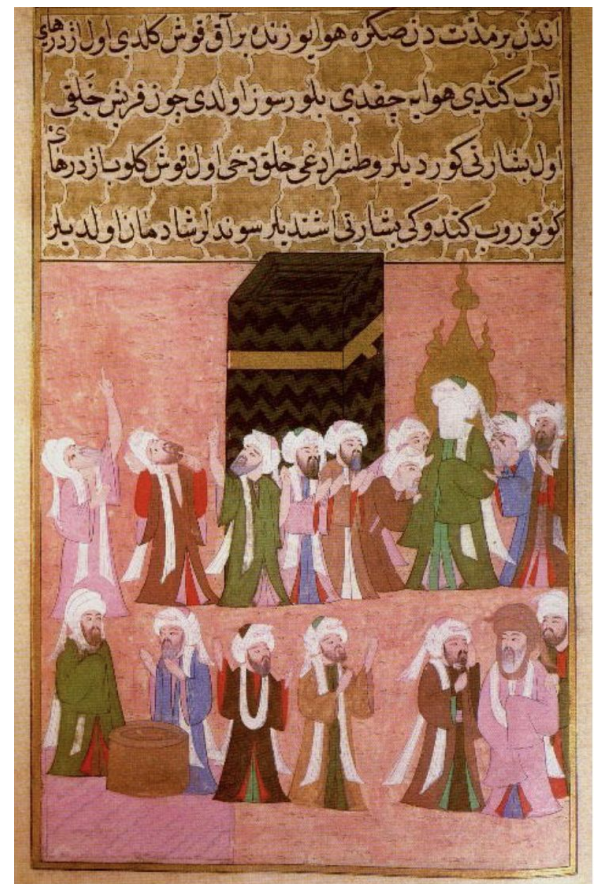 اندن بر مدت دن صكره هوا يوزنده بر آق قوش كلدى اول اژدرهاى
آلوب كتدى هوايه چقدى بلورسوز اولدى چون قريش خلقى
اول بشارتى كورديلر و طشرادغى خلق دخى اول قوش كلوب اژدرهاى
كوتوروب كتدوكى بشارتى اشتديلر سوندلر شادمان اولديلر